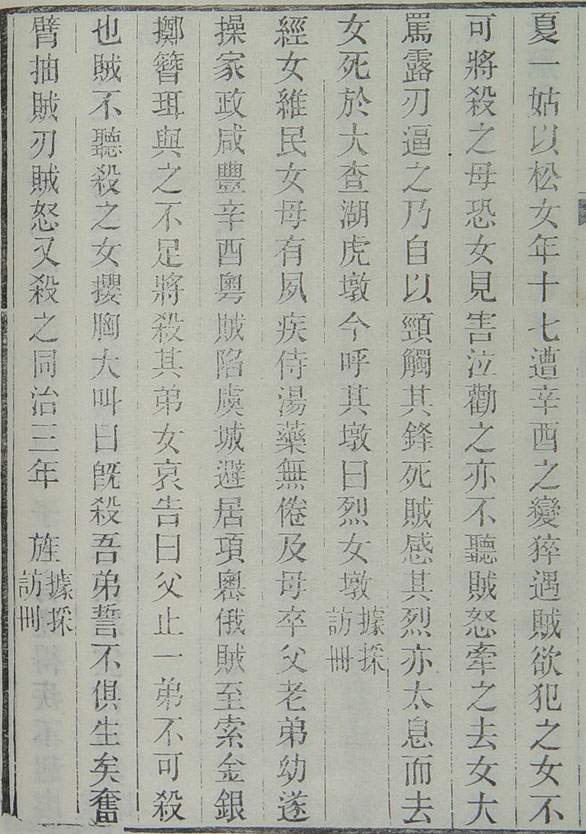 夏一姑以松女年十七遭辛酉之變猝遇賊欲犯之女不
可將殺之母恐女見害泣勸之亦不聽賊怒牽之去女大
罵露刃逼之乃自以頸觸其鋒死賊感其烈亦太息而去
女死於大查湖虎墩今呼其墩曰烈女墩據採訪冊
經女維民女母有夙疾侍湯藥無倦及母卒父老弟幼遂
操家政咸豐辛酉粵賊陷虞城避居項嶴俄賊至索金銀
擲簪珥與之不足將殺其弟女哀告曰父止一弟不可殺
也賊不聽殺之女攖胸大叫曰旣殺吾弟誓不俱生矣奮
臂抽賊刃賊怒又殺之同治三年 旌據採訪冊